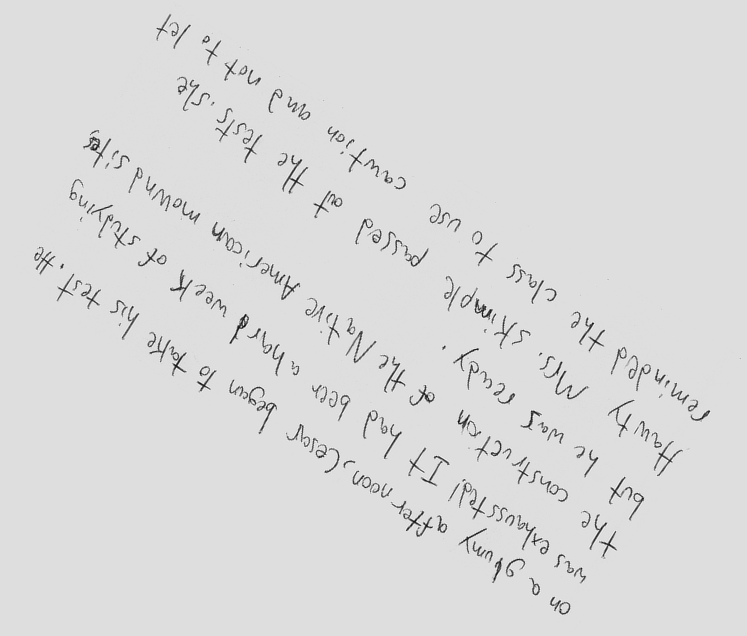 on a glumy after noon, Cesar began to take his test. He
was exhaussted! It had been a hard week of studying
the construction of the Native American mound sites,
but he was ready.
Hawty Mrs. skimple passed out the tests. she
reminded the class to use caution and not to let